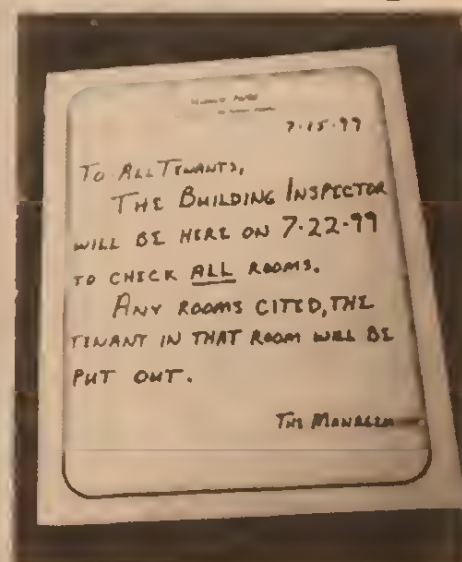 7-15-99
TO ALL TENANTS,
THE BUILDING INSPECTOR
WILL BE HERE ON 7-22-99
TO CHECK ALL ROOMS.
ANY ROOMS CITED, THE
TENANT IN THAT ROOM WILL BE
PUT OUT.
THE